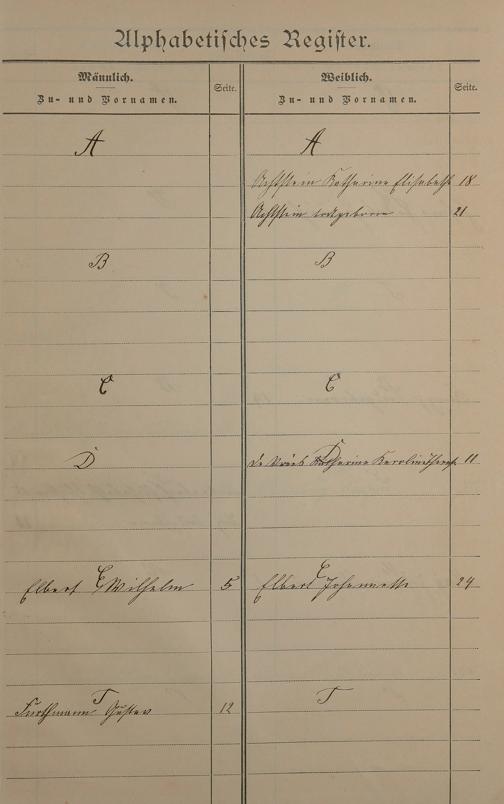 Alphabetisches Register.
Männlich.
Zu- und Vornamen.
Seite.
Weiblich.
Zu- und Vornamen.
Seite.
A
A
Achtstein Katharine Elisabeth 18
Achtstein totgeboren 21
B
B
C
C
D
D
de Vries Katharine 11
E
E
Elbert Wilhelm 5
Elbert Johannette 24
F
F
Furthmann Gustav 12